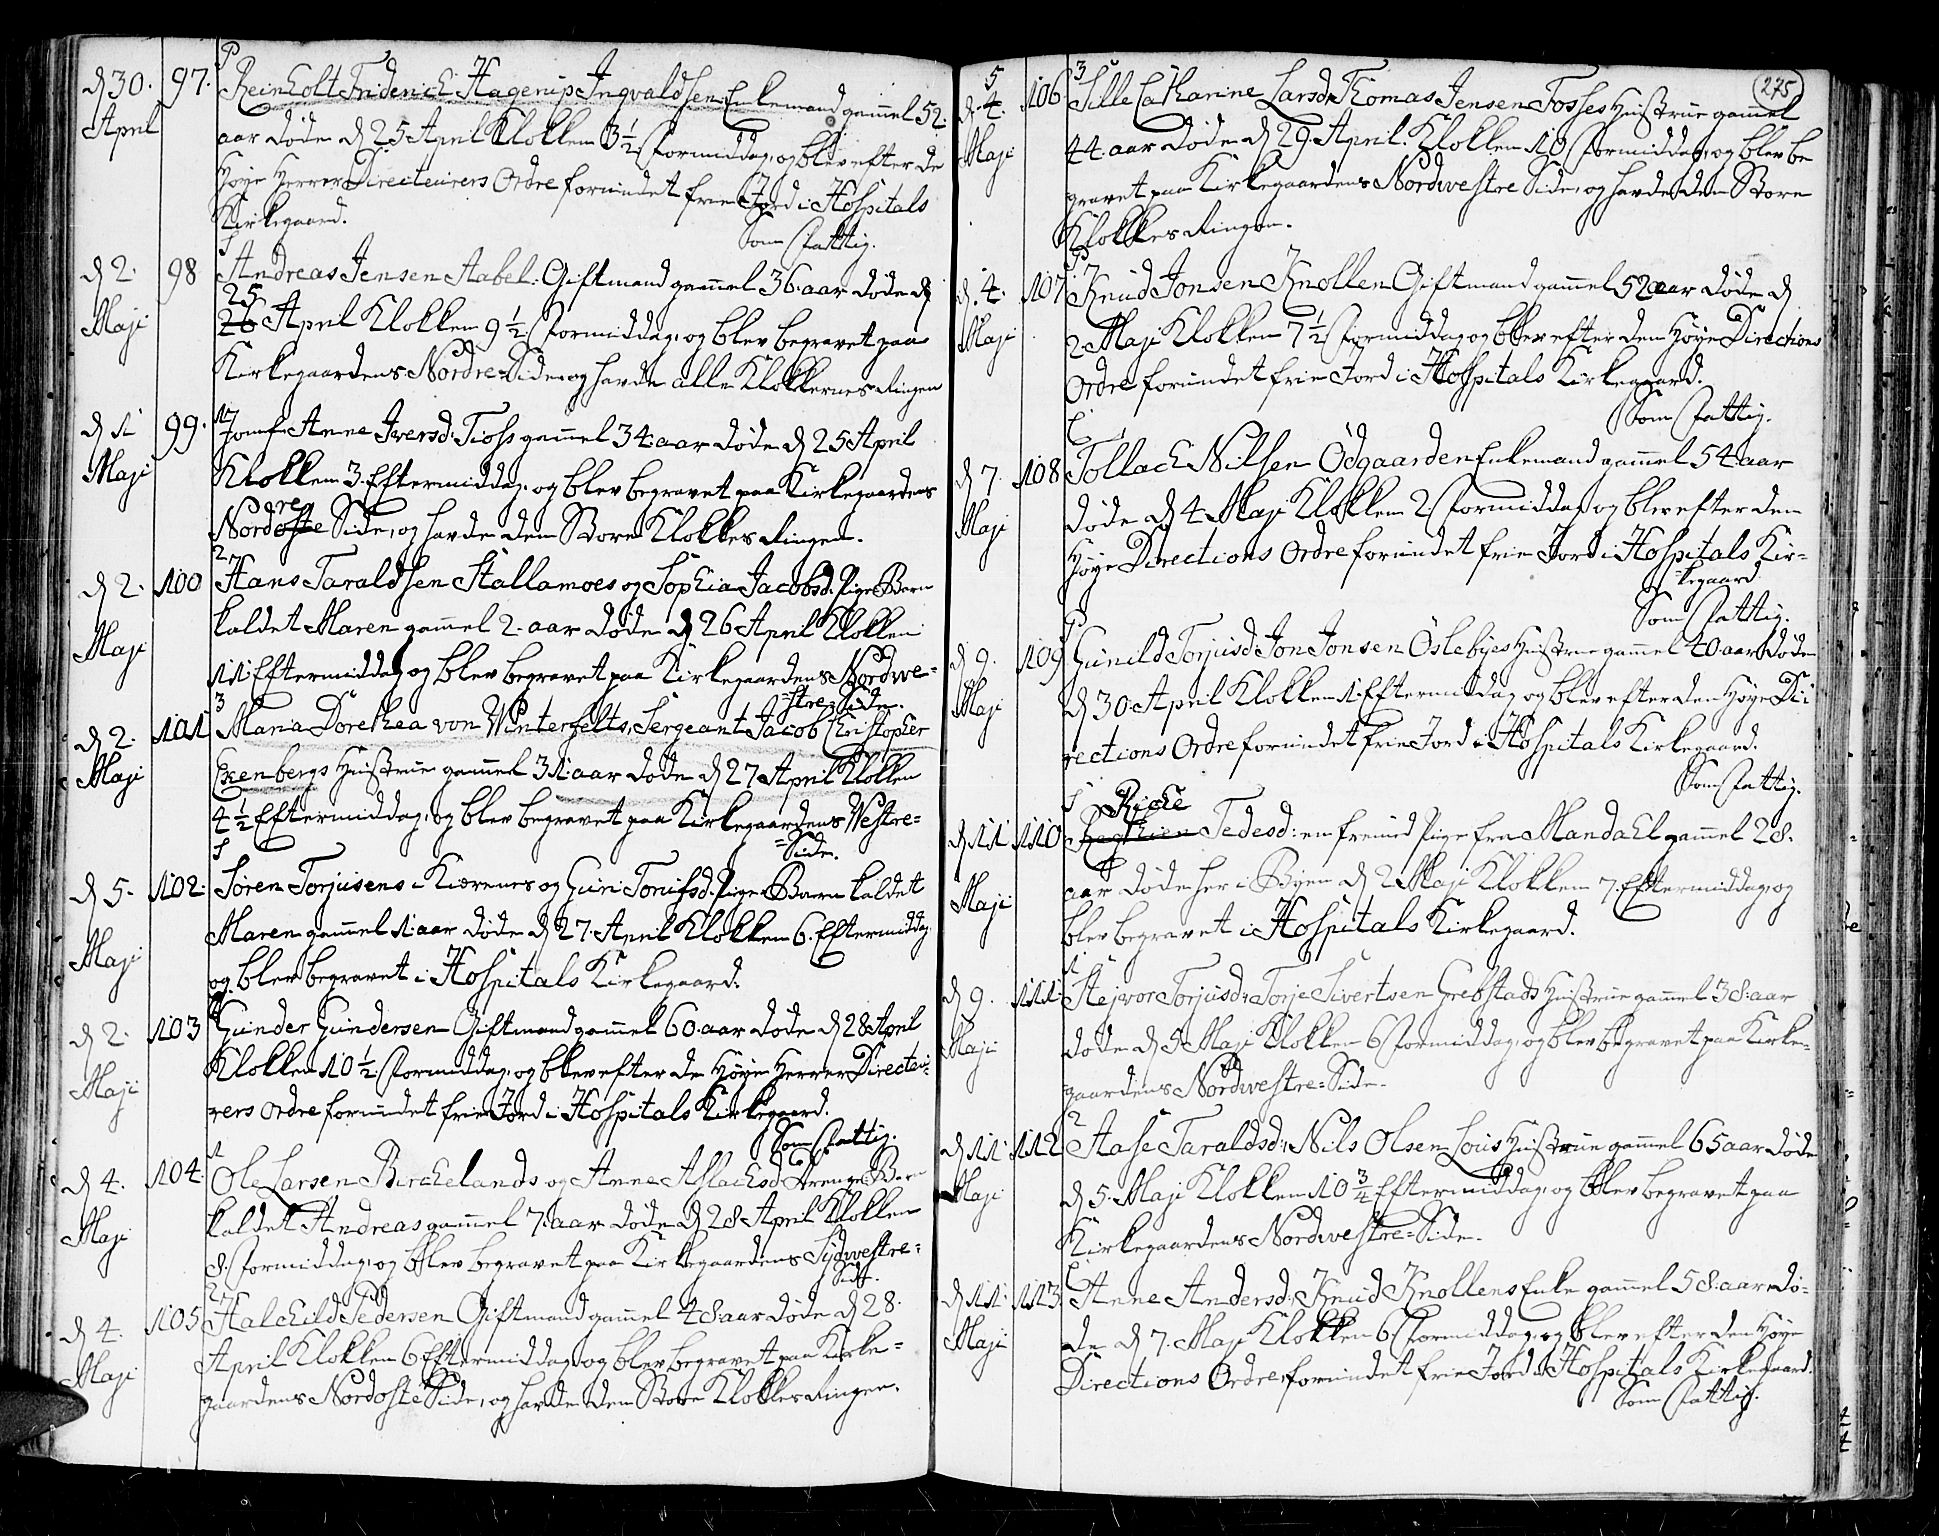 P
d 30. 97. Reinholt Friderich Hagerup Ingvaldsen Enkemand gamel 52.
April aar døde d 25 April Klokken 3½ formiddag, og blev efter de
Høye Herrer Directeurers Ordre forundet frie Jord i Hospitals
Kirkegaard.
Som fattig.
S
d 2. 98 Andreas Jensen Aabel. Giftmand gamel 36. aar døde d
25
Maji 26 April Klokken 9½ formiddag, og blev begravet paa
Kirkegaardens Nordre-Side, og havde alle Klokkernes Ringen
d 1 99. Jomf: Anne Iversd: Fioss gamel 34. aar døde d 25 April
Maji Klokken 3. Eftermiddag, og blev begravet paa Kirkegaardens
re
Nordoste Side, og havde den Store Klokkes Ringen.
2
d 2. 100 Hans Taraldsen Stallamoes og Sophia Jacobsd. Pige-Barn
Maji kaldet Maren gamel 2. aar døde d 26 April Klokken
11. Eftermiddag og blev begravet paa Kirkegaardens Nordwe=
=stre-Side.
3
d 2. 101 Maria Dorethea von Winterfelts, Sergeant Jacob Christopher
Maji Exenbergs Hustrue gamel 31. aar døde d 27 April Klokken
4½ Eftermiddag, og blev begravet paa Kirkegaardens Westre=
=Side.
S
d 5. 102. Søren Torjusens i Kiærenes og Guri Tonisd. Pige-Barn kaldet
Maji Maren gamel 1. aar døde d 27. April Klokken 6. Eftermiddag.
og blev begravet i Hospitals Kirkegaard.
d 2. 103 Gunder Gundersen Giftmand gamel 60. aar døde d 28 April
Maji Klokken 10½ formiddag, og blev efter de Høye Herrer Directeu-
rers Ordre forundet frie Jord i Hospitals Kirkegaard.
Som fattig.
1
d 4. 104. Ole Larsen Birchelands og Anne Aslachsd Drenge-Barn
Maji kaldet Andreas gamel 7. aar døde d 28 April Klokken
8. formiddag, og blev begravet paa Kirkegaardens Sydwestre=
Side.
2
d 4. 105 Halchild Pedersen Giftmand gamel 48 aar døde d 28.
Maji April Klokken 6 Eftermiddag, og blev begravet paa Kirke=
gaardens Nordoste Side, og havde den Store Klokkes Ringen.
275
5 3
d. 4. 106 Sille Catharine Larsd. Thomas Jensen Fosses Hustrue gamel
Maji 44. aar døde d 29. April. Klokken 10 formiddag, og blev be
gravet paa Kirkegaardens Nordwestre Side, og havde den Store
Klokkes Ringen.
P
d. 4. 107 Knud Jonsen Knollen Giftmand gamel 52 aar døde d
Maji 2 Maji Klokken 7½ formiddag og blev efter den Høye Directions
Ordre forundet frie Jord i Hospitals Kirkegaard.
Som fattig.
d 7. 108 Tollach Nilsen Ødgaarden Enkemand gamel 54. aar
Maji døde d 4 Maji Klokken 2 formiddag og blev efter den
Høye Directions Ordre forundet frie Jord i Hospitals Kir=
=kegaard
Som fattig.
P
d 9. 109 Gunild Torjusd Jon Jonsen Øslebyes Hustrue gamel 40 aar døde
Maji d 30. April Klokken 1 Eftermiddag, og blev efter den Høye Di
rections Ordre forundet frie Jord i Hospitals Kirkegaard.
Som fattig.
S Riche
d 11 110 Tedesd: en fremd Pige fra Mandahl gamel 28.
Maji aar døde her i Byen d 2 Maji Klokken 7. Eftermiddag, og
blev begravet i Hospitals Kirkegaard.
1
d 9. 111. Stejvor Torjusd: Torje Sivertsen Grebstads Hustrue gamel 38. aar
Maji døde d 5 Maji Klokken 6 formiddag, og blev begravet paa Kirke=
gaardens Nordwestre=Side.
2
d 11 112 Aase Taraldsd: Nils Olsen Lous Hustrue gamel 65 aar døde
Maji d 5. Maji Klokken 10¾ Eftermiddag, og blev begravet paa
Kirkegaardens Nordwestre=Side.
d 11. 113. Anne Andersd: Knud Knollens Enke gamel 58. aar dø=
Maji de d 7. Maji Klokken 6 formiddag, og blev efter den Høye
Directions Ordre forundet frie Jord i Hospitals Kirkegaard.
Som fattig.